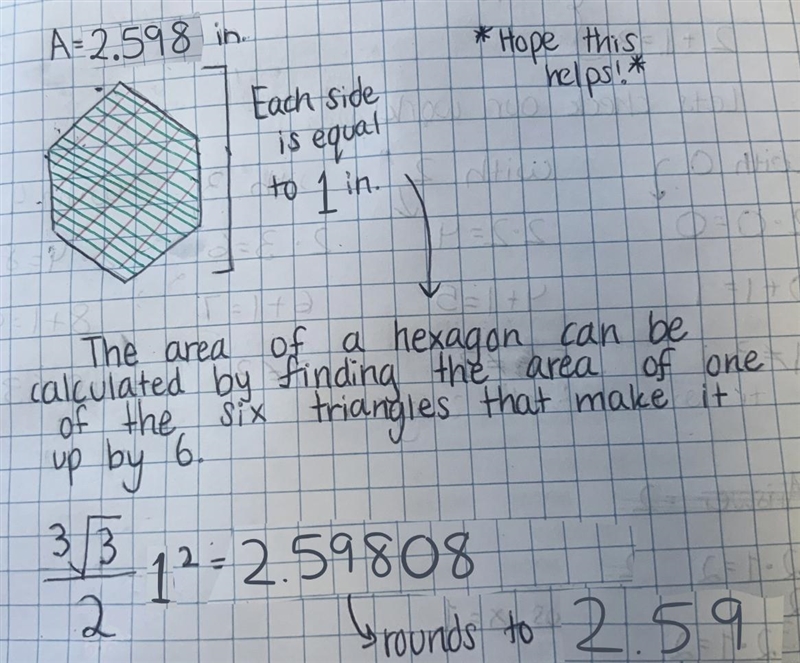 A = 2.598 in.
*Hope this
helps!*
Each side
is equal
to 1 in.
The area of a hexagon can be
calculated by finding the area of one
of the six triangles that make it
up by 6.
3√3/2 1² = 2.59808
↳ rounds to 2.59